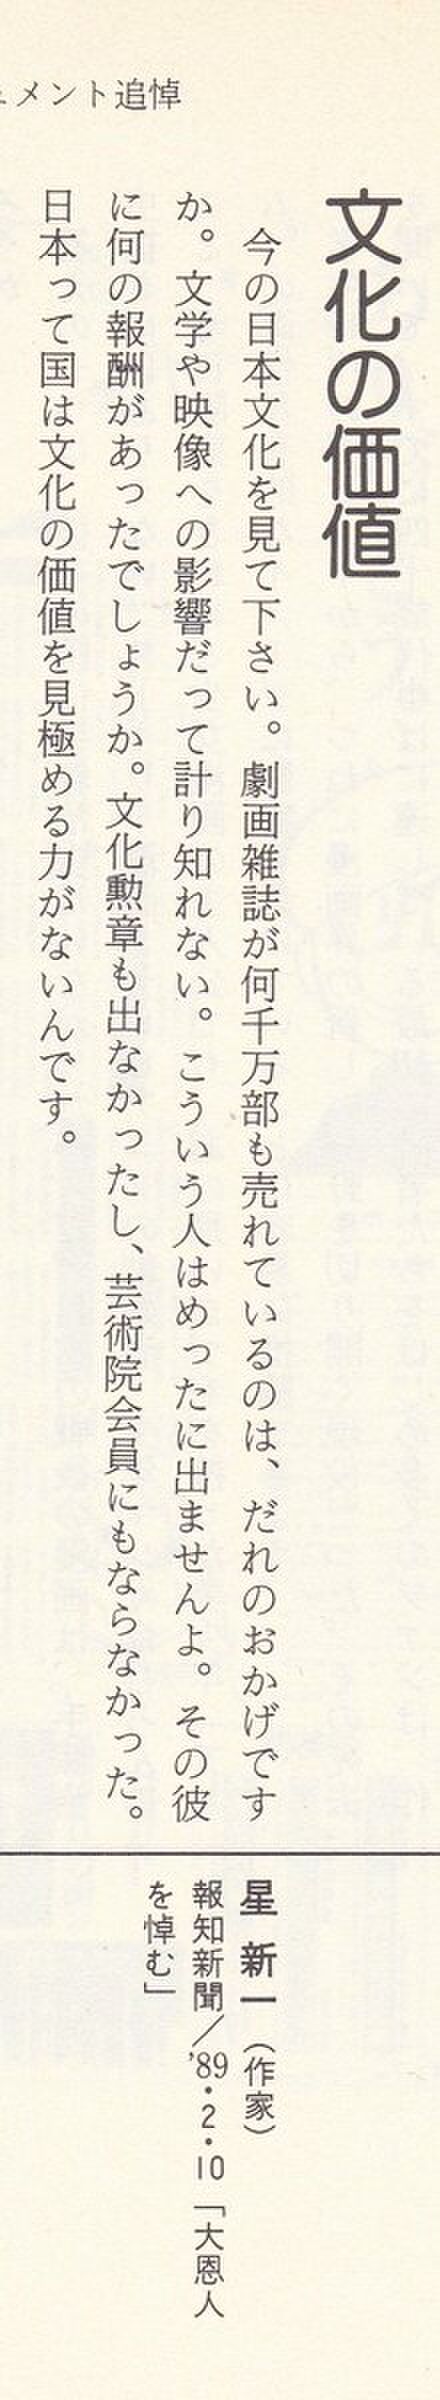 ュメント追悼
文化の価値
今の日本文化を見て下さい。劇画雑誌が何千万部も売れているのは、だれのおかげです
か。文学や映像への影響だって計り知れない。こういう人はめったに出ませんよ。その彼
に何の報酬があったでしょうか。文化勲章も出なかったし、芸術院会員にもならなかった。
日本って国は文化の価値を見極める力がないんです。
星 新一（作家）
報知新聞／'89・2・10「大恩人
を悼む」